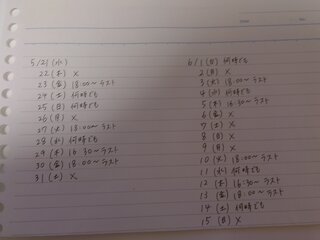 5/21(水)
22(木) ×
23(金) 18:00〜ラスト
24(土) 何時でも
25(日) 何時でも
26(月) ×
27(火) 18:00〜ラスト
28(水) 何時でも
29(木) 16:30〜ラスト
30(金) 18:00〜ラスト
31(土) ×
6/1(日) 何時でも
2(月) ×
3(火) 18:00〜ラスト
4(水) 何時でも
5(木) 16:30〜ラスト
6(金) ×
7(土) ×
8(日) ×
9(月) ×
10(火) 18:00〜ラスト
11(水) 何時でも
12(木) 16:30〜ラスト
13(金) 18:00〜ラスト
14(土) 何時でも
15(日) ×